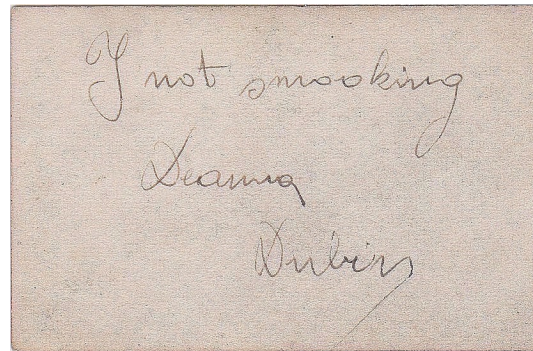 I not smooking
Deanna
Dubin